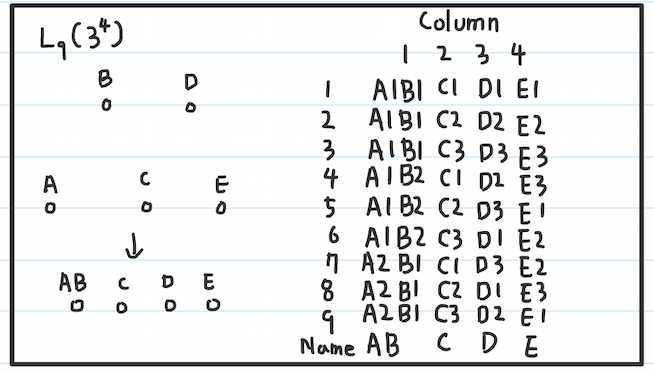 L9(3^4)
B D
A C E
↓
AB C D E
Column
1 2 3 4
1 A1B1 C1 D1 E1
2 A1B1 C2 D2 E2
3 A1B1 C3 D3 E3
4 A1B2 C1 D2 E3
5 A1B2 C2 D3 E1
6 A1B2 C3 D1 E2
7 A2B1 C1 D3 E2
8 A2B1 C2 D1 E3
9 A2B1 C3 D2 E1
Name AB C D E